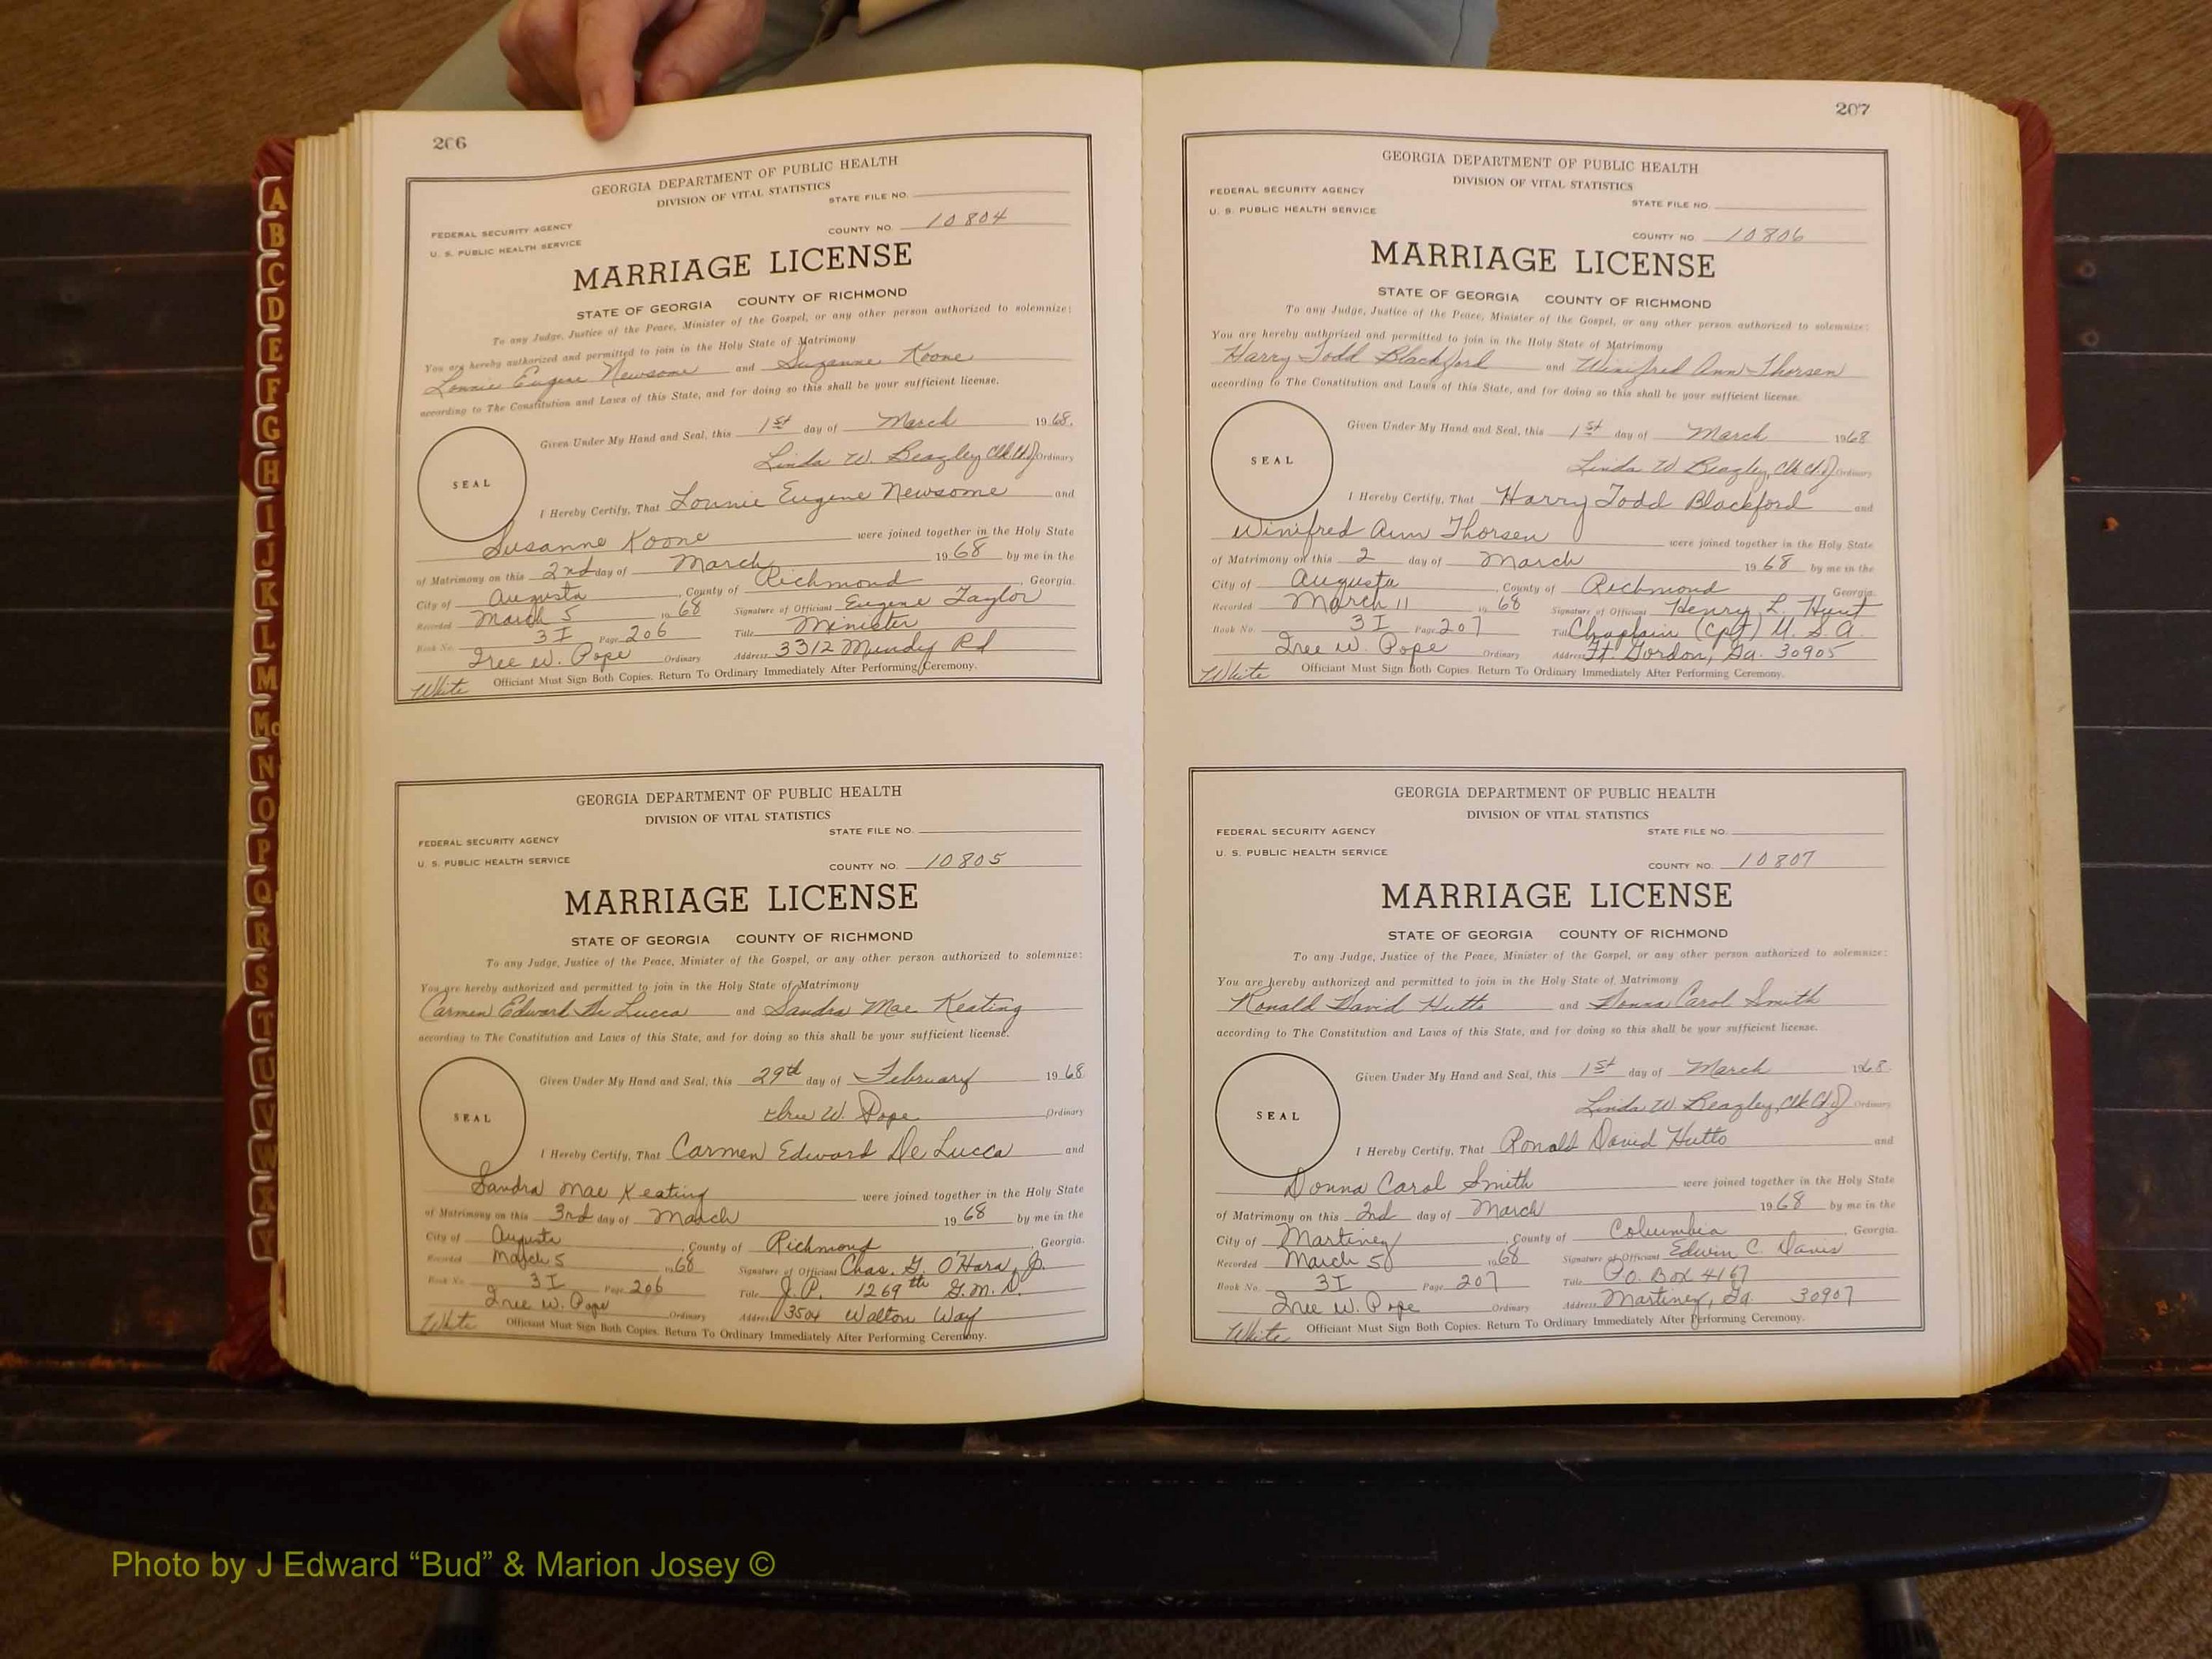 206
GEORGIA DEPARTMENT OF PUBLIC HEALTH
DIVISION OF VITAL STATISTICS
STATE FILE NO.
FEDERAL SECURITY AGENCY
U. S. PUBLIC HEALTH SERVICE
COUNTY NO. 10804
MARRIAGE LICENSE
STATE OF GEORGIA COUNTY OF RICHMOND
To any Judge, Justice of the Peace, Minister of the Gospel, or any other person authorized to solemnize:
You are hereby authorized and permitted to join in the Holy State of Matrimony
Lonnie Eugene Newsome and Suzanne Koone
according to The Constitution and Laws of this State, and for doing so this shall be your sufficient license.
Given Under My Hand and Seal, this 1st day of March 1968.
Linda W. Beazley, Clk Ct.Ordinary
SEAL
I Hereby Certify, That Lonnie Eugene Newsome and
Susanne Koone were joined together in the Holy State
of Matrimony on this 2nd day of March 1968 by me in the
City of Augusta, County of Richmond, Georgia.
Recorded March 5 1968 Signature of Officiant Eugene Taylor
Book No. 3I Page 206 Title Minister
Iree W. Pope Ordinary Address 3312 Mundy Rd
White Officiant Must Sign Both Copies. Return To Ordinary Immediately After Performing Ceremony.
GEORGIA DEPARTMENT OF PUBLIC HEALTH
DIVISION OF VITAL STATISTICS
STATE FILE NO.
FEDERAL SECURITY AGENCY
U. S. PUBLIC HEALTH SERVICE
COUNTY NO. 10805
MARRIAGE LICENSE
STATE OF GEORGIA COUNTY OF RICHMOND
To any Judge, Justice of the Peace, Minister of the Gospel, or any other person authorized to solemnize:
You are hereby authorized and permitted to join in the Holy State of Matrimony
Carmen Edward De Lucca and Sandra Mae Keating
according to The Constitution and Laws of this State, and for doing so this shall be your sufficient license.
Given Under My Hand and Seal, this 29th day of February 1968
Iree W. Pope Ordinary
SEAL
I Hereby Certify, That Carmen Edward De Lucca and
Sandra Mae Keating were joined together in the Holy State
of Matrimony on this 3rd day of March 1968 by me in the
City of Augusta, County of Richmond, Georgia.
Recorded March 5 1968 Signature of Officiant Chas. G. O'Hara, Jr.
Book No. 3I Page 206 Title J.P. 1269th G.M.D.
Iree W. Pope Ordinary Address 3504 Walton Way
White Officiant Must Sign Both Copies. Return To Ordinary Immediately After Performing Ceremony.
207
GEORGIA DEPARTMENT OF PUBLIC HEALTH
DIVISION OF VITAL STATISTICS
FEDERAL SECURITY AGENCY
U. S. PUBLIC HEALTH SERVICE
STATE FILE NO.
COUNTY NO. 10806
MARRIAGE LICENSE
STATE OF GEORGIA COUNTY OF RICHMOND
To any Judge, Justice of the Peace, Minister of the Gospel, or any other person authorized to solemnize:
You are hereby authorized and permitted to join in the Holy State of Matrimony
Harry Todd Blackford and Winifred Ann Thorsen
according to The Constitution and Laws of this State, and for doing so this shall be your sufficient license.
Given Under My Hand and Seal, this 1st day of March 1968
Linda W. Beazley, Clk Ct. Ordinary
SEAL
I Hereby Certify, That Harry Todd Blackford and
Winifred Ann Thorsen were joined together in the Holy State
of Matrimony on this 2 day of March 1968 by me in the
City of Augusta, County of Richmond Georgia.
Recorded March 11 1968 Signature of Officiant Henry L. Hunt
Book No. 3I Page 207 Title Chaplain (Cpt) U.S.A.
Iree W. Pope Ordinary Address Ft. Gordon, Ga. 30905
White Officiant Must Sign Both Copies. Return To Ordinary Immediately After Performing Ceremony.
GEORGIA DEPARTMENT OF PUBLIC HEALTH
DIVISION OF VITAL STATISTICS
FEDERAL SECURITY AGENCY
STATE FILE NO.
U. S. PUBLIC HEALTH SERVICE
COUNTY NO. 10807
MARRIAGE LICENSE
STATE OF GEORGIA COUNTY OF RICHMOND
To any Judge, Justice of the Peace, Minister of the Gospel, or any other person authorized to solemnize:
You are hereby authorized and permitted to join in the Holy State of Matrimony
Ronald David Hutto and Donna Carol Smith
according to The Constitution and Laws of this State, and for doing so this shall be your sufficient license.
Given Under My Hand and Seal, this 1st day of March 1968
Linda W. Beazley, Clk Ct. Ordinary
SEAL
I Hereby Certify, That Ronald David Hutto and
Donna Carol Smith were joined together in the Holy State
of Matrimony on this 2nd day of March 1968 by me in the
City of Martinez, County of Columbia, Georgia.
Recorded March 5 1968 Signature of Officiant Edwin C. Davis
Book No. 3I Page 207 Title P.O. Box 4167
Iree W. Pope Ordinary Address Martinez, Ga. 30907
White Officiant Must Sign Both Copies. Return To Ordinary Immediately After Performing Ceremony.
A
B
C
D
E
F
G
H
I
J
K
L
M
Mc
N
O
P
Q
R
S
T
U
V
W
X
Y
Photo by J Edward “Bud” & Marion Josey ©